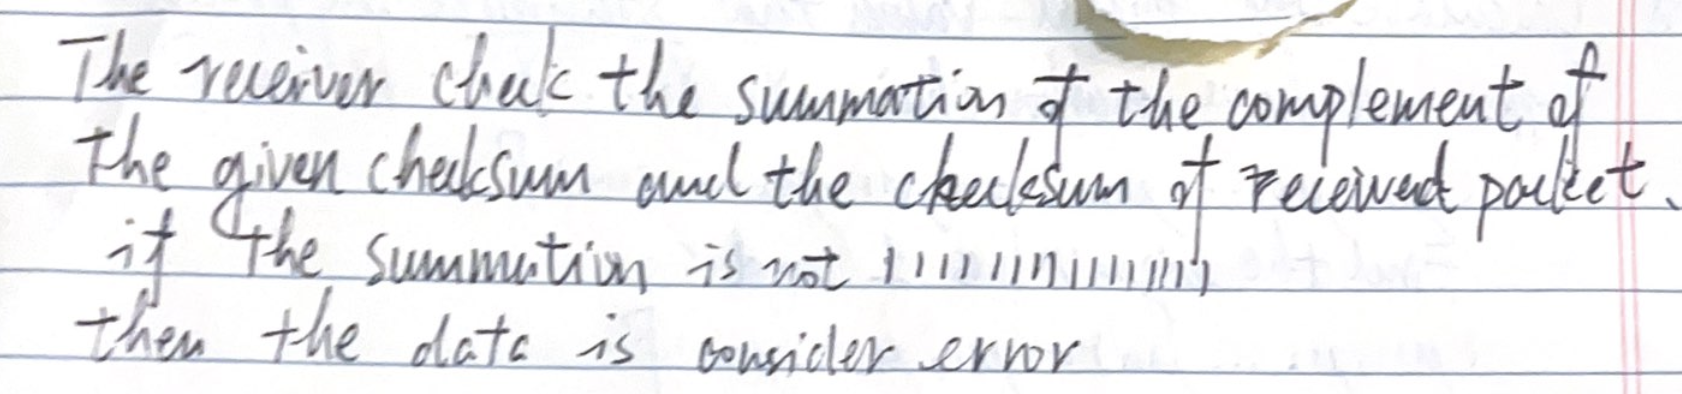 The receiver check the summation of the complement of
the given checksum and the checksum of received packet.
if the summation is not 1111111111111111
then the data is consider error